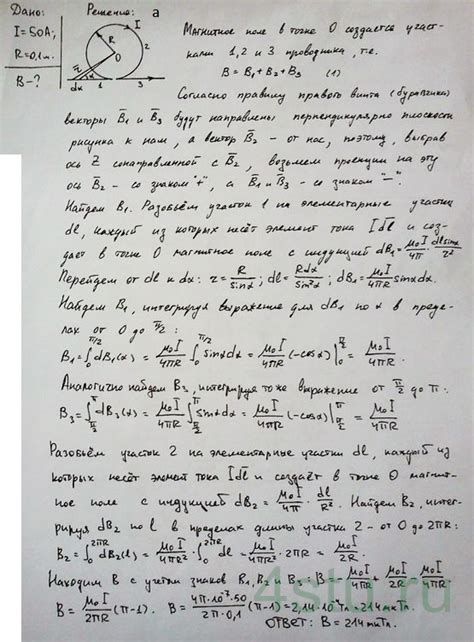 Дано:
I=50А;
R=0,1м.
B-?
Решение:
а
I
R
O
2
r
α
dα
1
3
Магнитное поле в точке О создается участ-
ками 1,2 и 3 проводника, т.е.
B = B₁ + B₂ + B₃ (1)
Согласно правилу правого винта (буравчика)
векторы B̄₁ и B̄₃ будут направлены перпендикулярно плоскости
рисунка к нам, а вектор B̄₂ - от нас, поэтому, выбрав
ось Z сонаправленной с B̄₂, возьмем проекции на эту
ось B̄₂ - со знаком "+", а B̄₁ и B̄₃ - со знаком "-".
Найдем B₁. Разобьём участок 1 на элементарные участки
dl, каждый из которых несёт элемент тока Idl̄ и соз-
даёт в точке О магнитное поле с индукцией dB₁ = μ₀I/4π · dl sinα/r²
Перейдем от dl к dα: r = R/sinα; dl = Rdα/sin²α; dB₁ = μ₀I/4πR sinαdα.
Найдем B₁, интегрируя выражение для dB₁ по α в преде-
лах от 0 до π/2:
B₁ = ∫₀^(π/2) dB₁(α) = μ₀I/4πR ∫₀^(π/2) sinαdα = μ₀I/4πR (-cosα)|₀^(π/2) = μ₀I/4πR.
Аналогично найдем B₃, интегрируя тоже выражение от π/2 до π:
B₃ = ∫_(π/2)^π dB₃(α) = μ₀I/4πR ∫_(π/2)^π sinαdα = μ₀I/4πR (-cosα)|_(π/2)^π = μ₀I/4πR
Разобьём участок 2 на элементарные участки dl, каждый из
которых несёт элемент тока Idl̄ и создаёт в точке О магнит-
ное поле с индукцией dB₂ = μ₀I/4π · dl/R². Найдем B₂, интег-
рируя dB₂ по l в пределах длины участка 2 - от 0 до 2πR:
B₂ = ∫₀^(2πR) dB₂(l) = μ₀I/4πR² · ∫₀^(2πR) dl = μ₀I/4πR² · 2πR = μ₀I/2R.
Находим B с учетом знаков B₁, B₂ и B₃: B = -μ₀I/4πR + μ₀I/2R - μ₀I/4πR
B = μ₀I/2πR (π-1). B = 4π·10⁻⁷·50/2π·0,1 (π-1) = 2,14·10⁻⁴Тл = 214мкТл.
ОТВЕТ: B = 214мкТл.
4stu.ru